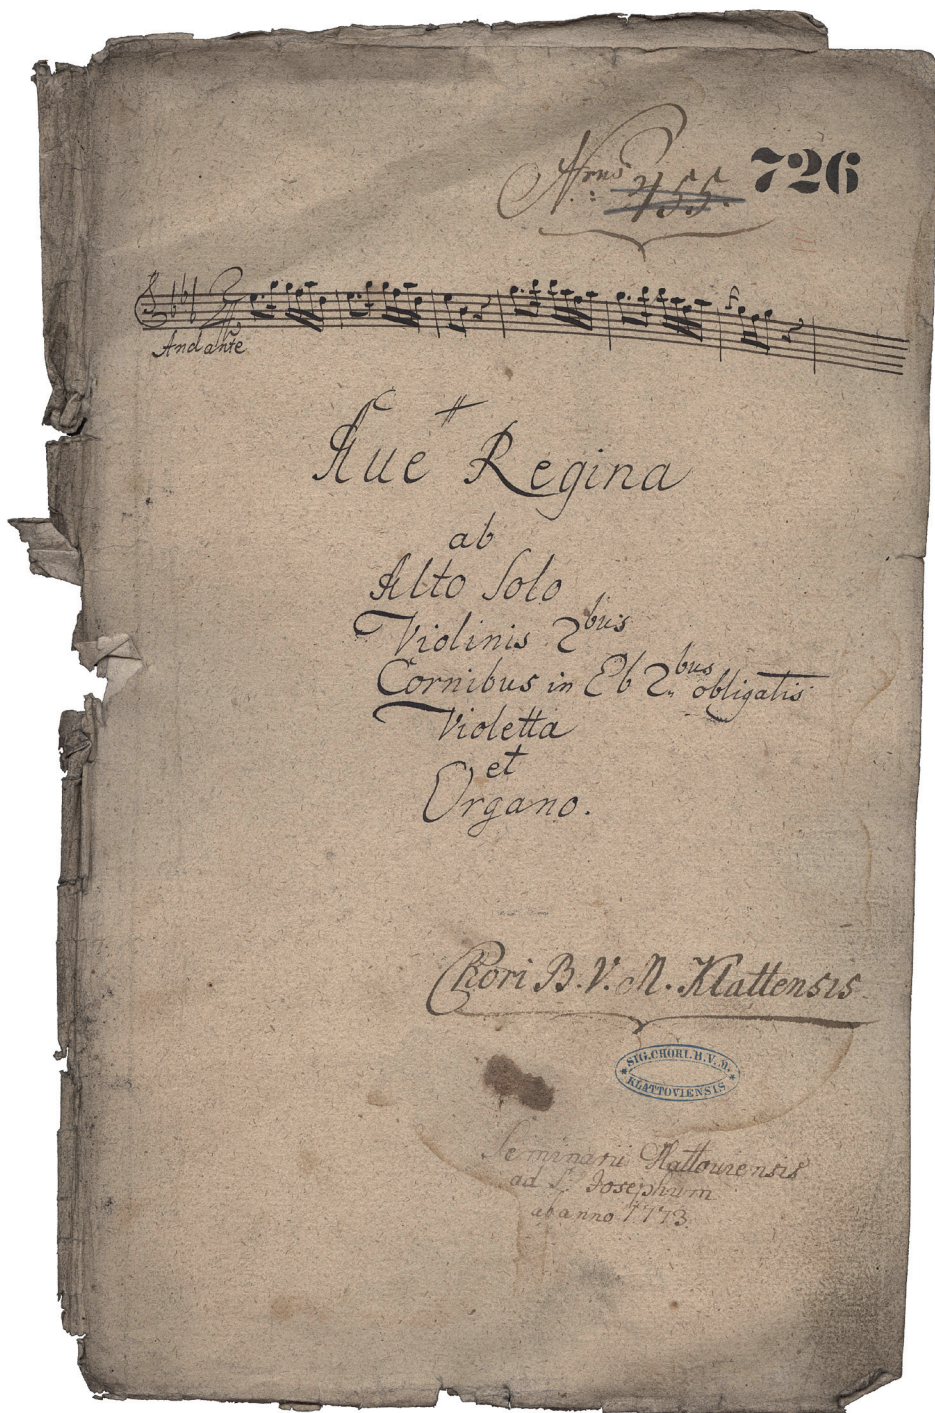 Nrus 455. 726
Andante
Aue Regina
ab
Alto Solo
Violinis 2bus
Cornibus in Eb 2bus obligatis
Violetta
et
Organo.
Chori B. V. M. Klattensis
SIG. CHORI. B. V. M.
KLATTOVIENSIS
Seminarii Klattouiensis
ad S. Josephum
ab anno 1773.